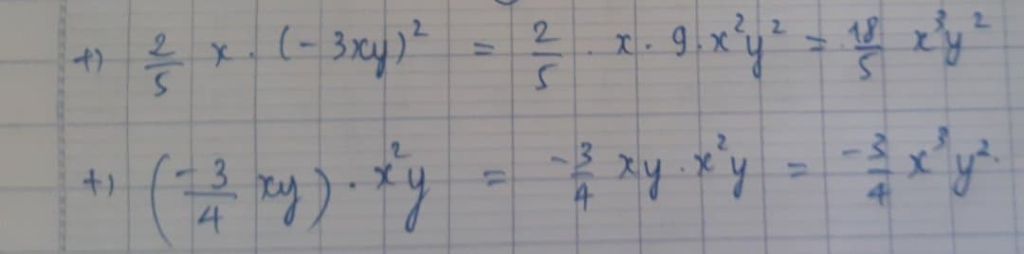 +) 2/5 x . (- 3xy)² = 2/5 . x . 9 . x²y² = 18/5 x³y²
+) (-3/4 xy) . x²y = -3/4 xy . x²y = -3/4 x³y².